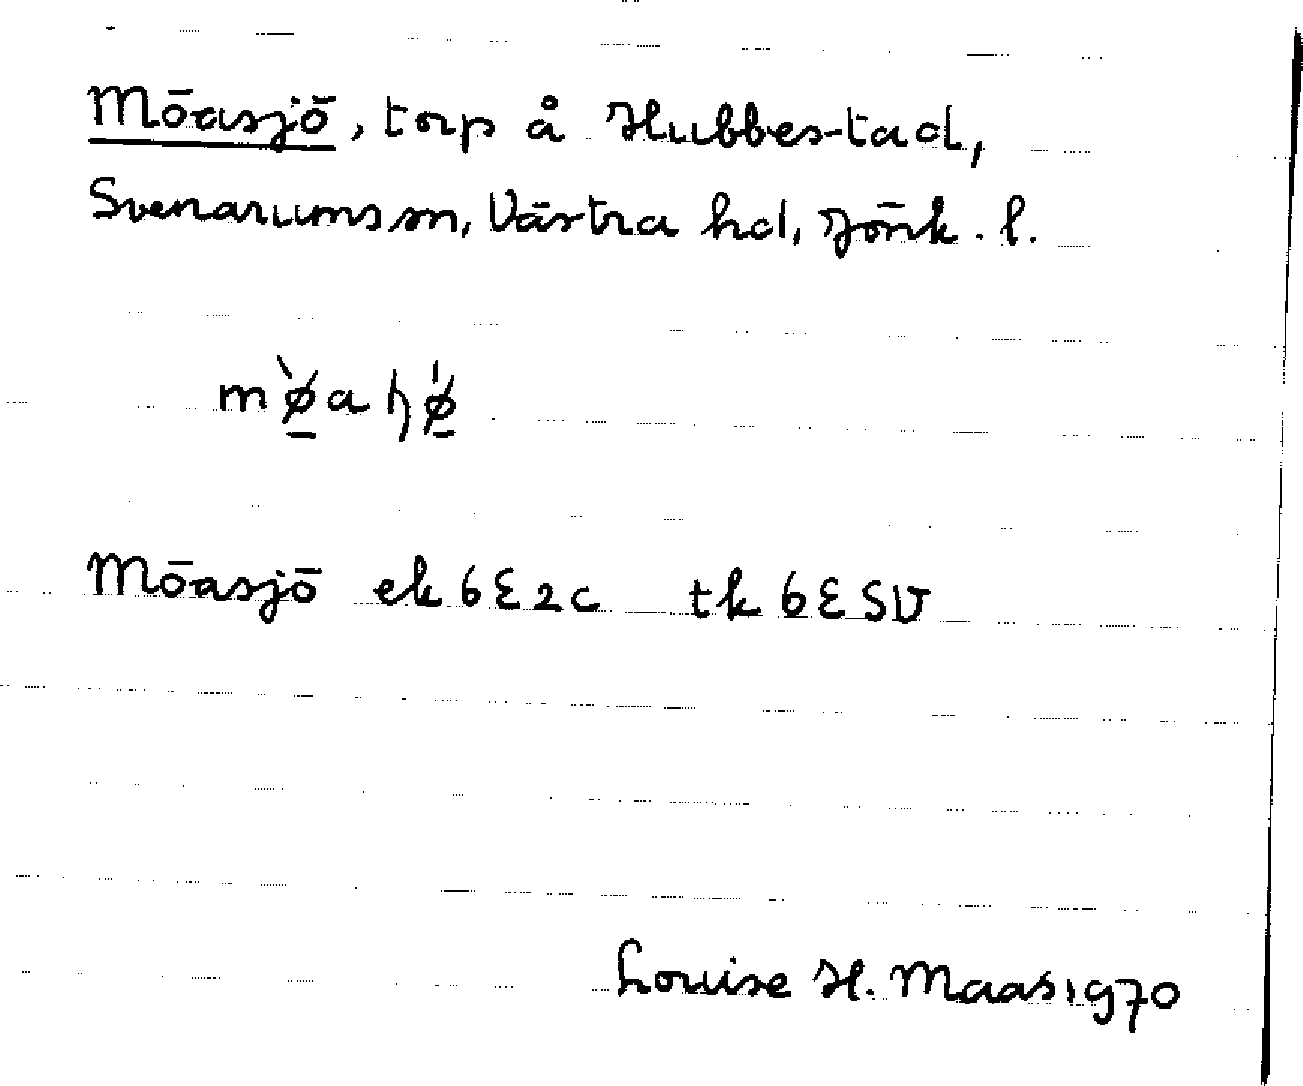 Möasjö, torp å Hubbestad,
Svenarums sn, Västra hd, Jönk. l.
Möasjö ek 6E2c tk 6ESV
Louise H. Maas 1970